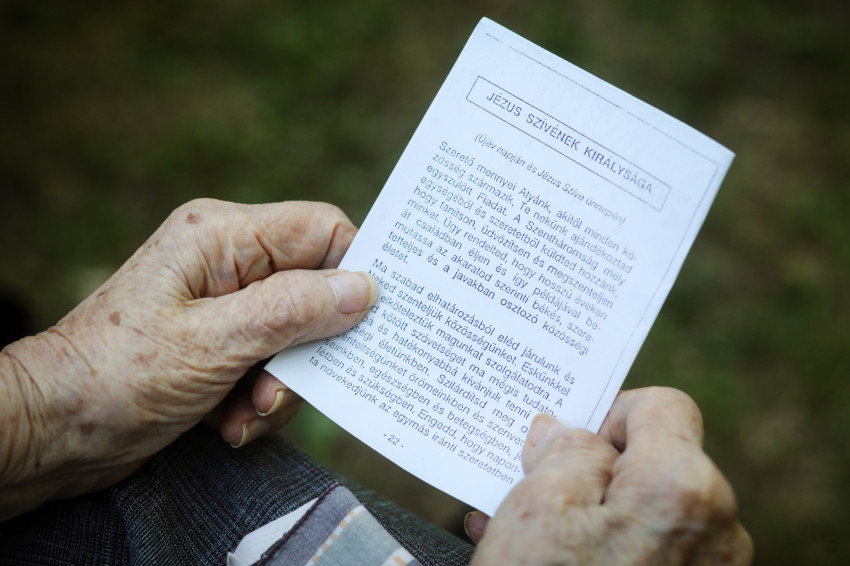 JÉZUS SZÍVÉNEK KIRÁLYSÁGA
(Újév napján és Jézus Szíve ünnepén)
Szerető mennyei Atyánk, akitől minden kö-
zösség származik, Te nekünk ajándékoztad
egyszülött Fiadat. A Szentháromság mély
egységéből és szeretetből küldted hozzánk,
hogy tanítson, üdvözítsen és megszenteljen
minket. Úgy rendelted, hogy hosszú éveken
át családban éljen és így példájával be-
mutassa az akaratod szerinti békés, szere-
tetteljes és a javakban osztozó közösségi
életet.
Ma szabad elhatározásból eléd járulunk és
Neked szenteljük közösségünket. Eskünkkel
elköteleztük magunkat szolgálatodra. A
kötött szövetséget ma mégis tudato-
és hatékonyabbá kívánjuk tenni
életünkben. Szilárdítsd meg
szenteltségünket örömeinkben és
seinkben, egészségben és betegségben,
létben és szükségben. Engedd, hogy napon-
ta növekedjünk az egymás iránti szeretetben
- 22 -